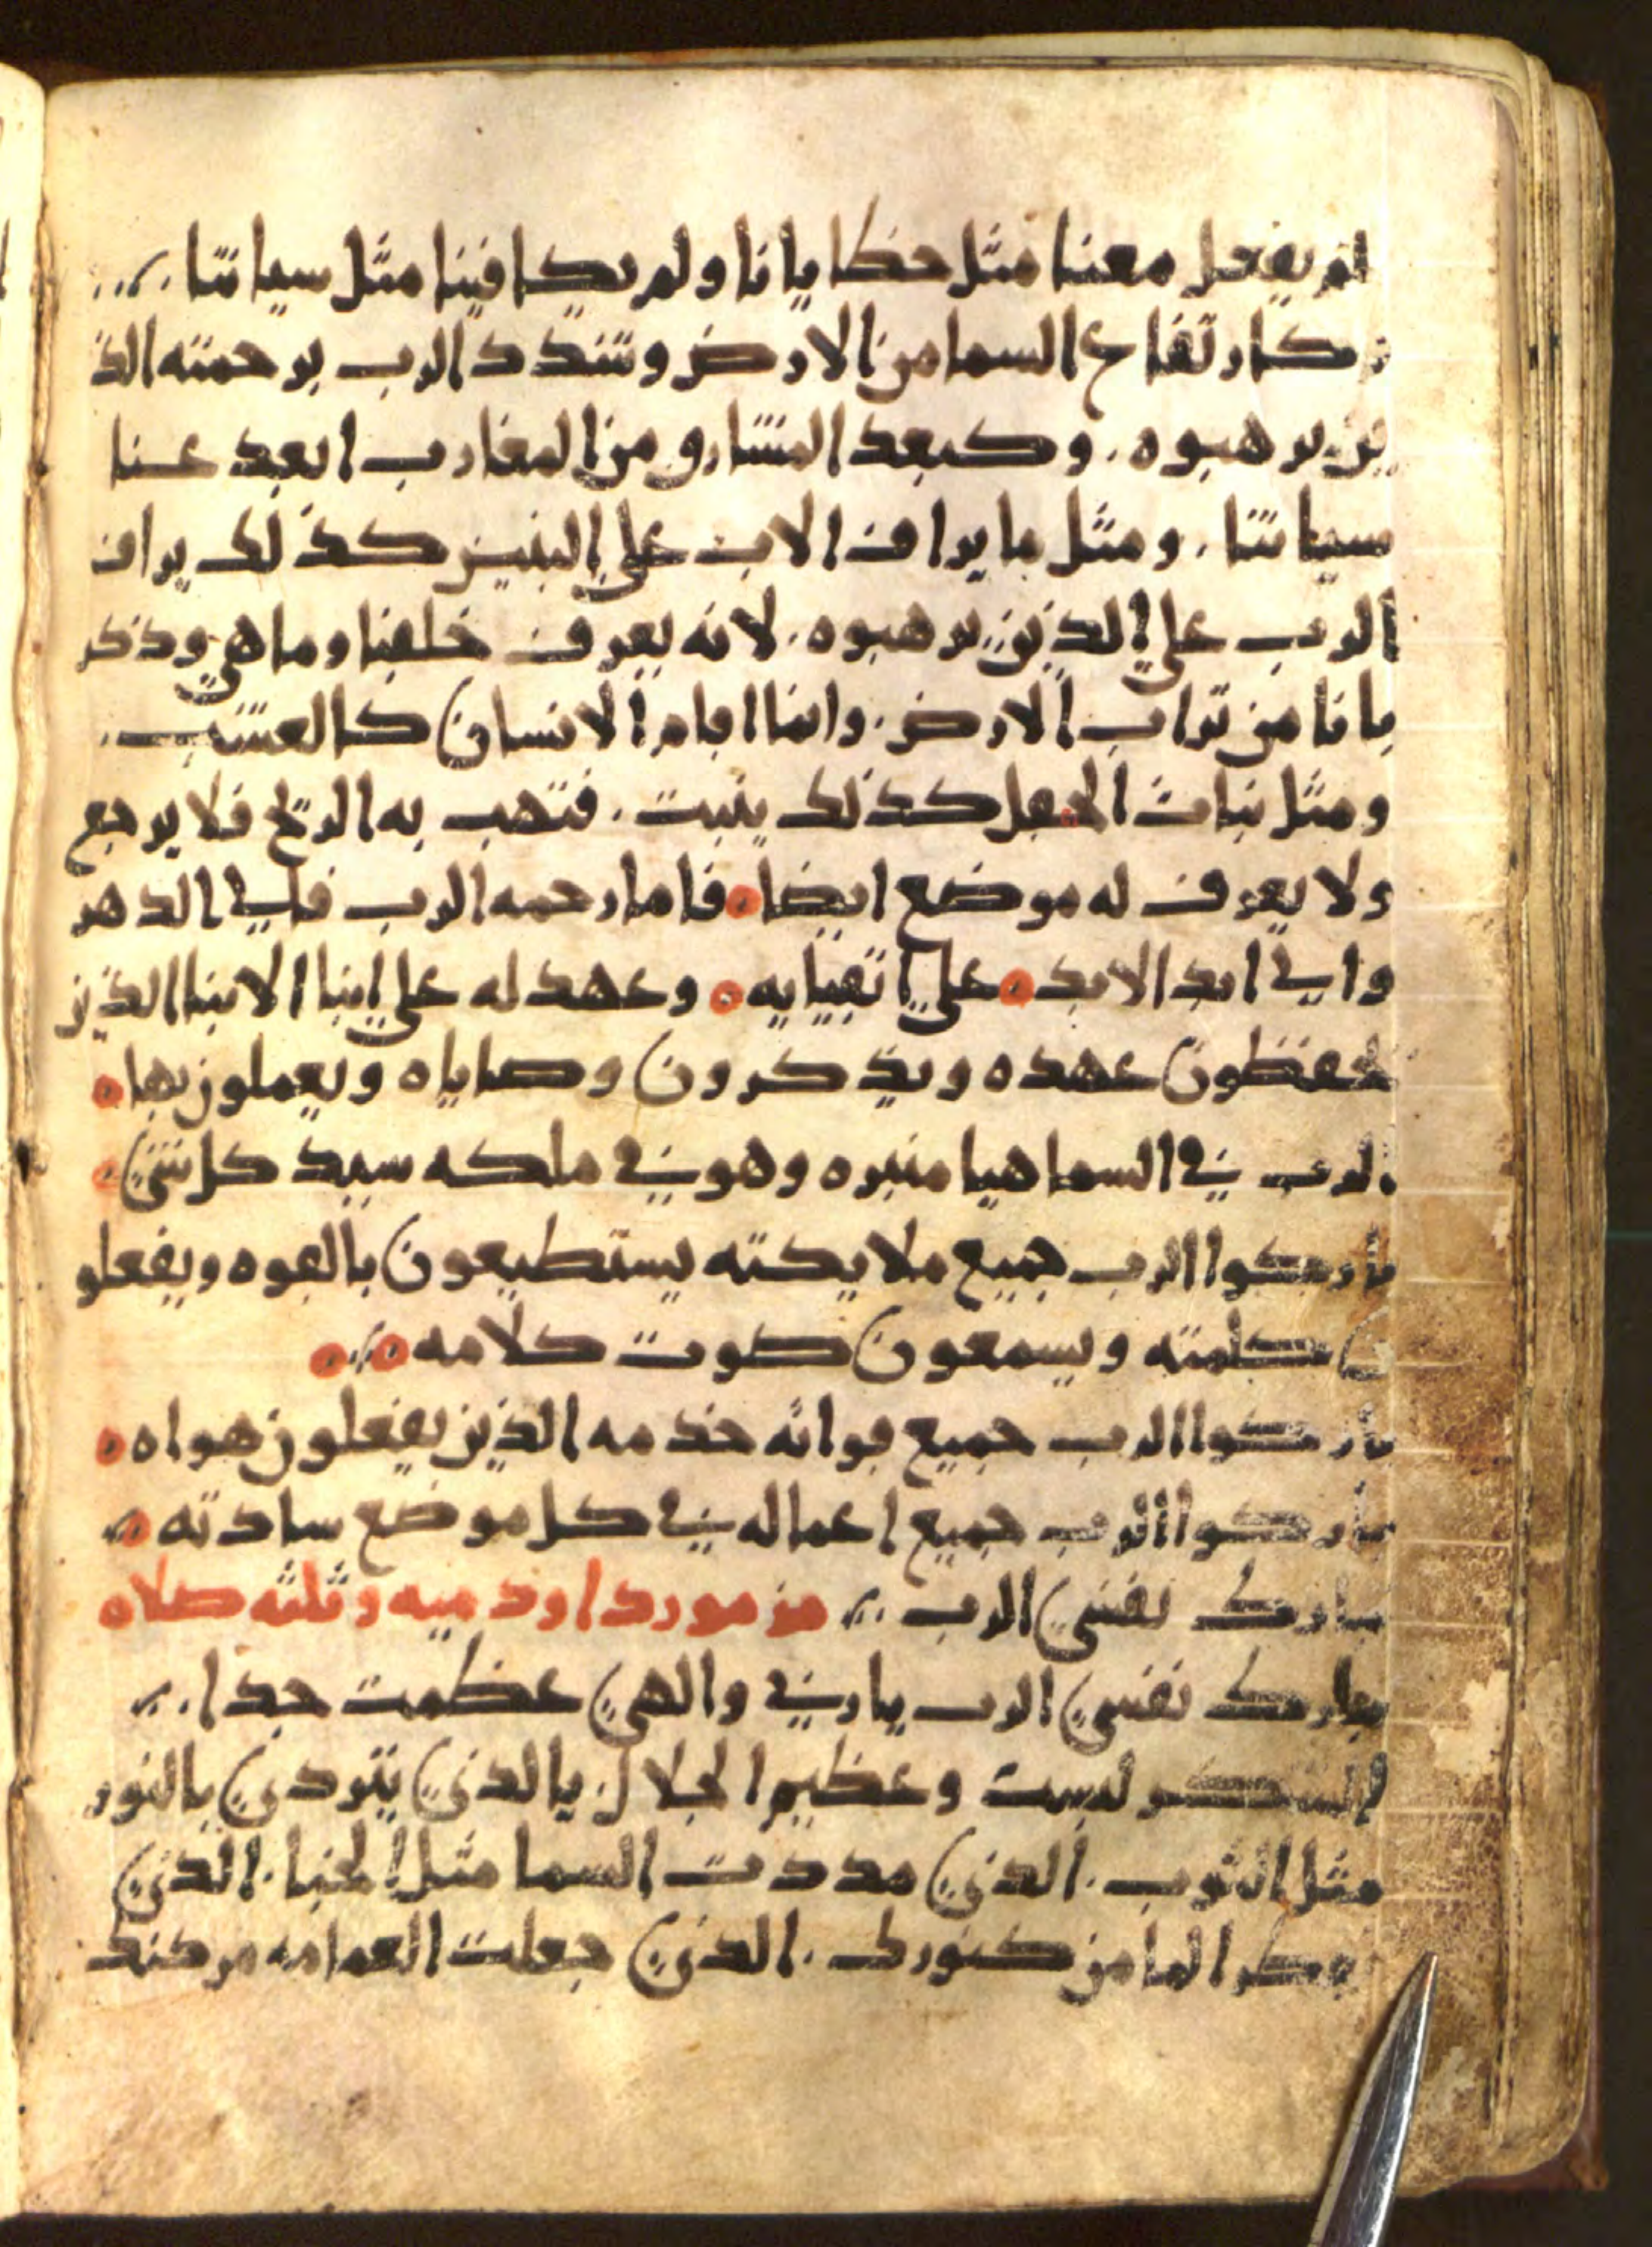 لم يفعل معنا مثل خطايانا ولم يكافينا مثل سياتنا
كارتفاع السما من الارض وشدد الرب برحمته الذ
ين يرهبوه . وكبعد المشارق من المغارب ابعد عنا
سياتنا . ومثل ما يراف الاب علي البنين كذلك يراف
الرب علي الذين يرهبوه . لانه يعرف خلقنا وما هي وذكر
بانا من تراب الارض . وانما ايام الانسان كالعشب .
ومثل نبات الحقل كذلك ينبت . فتهب به الريح فلا يرجع
ولا يعرف له موضع ايضا . فاما رحمه الرب فالي الدهر
والي ابد الابد . علي اتقيايه . وعهد له علي ابنا الابنا الذين
يحفظون عهده ويذكرون وصاياه ويعملون بها
الرب في السما هيا منبره وهو في ملكه سيد كل شي
باركوا الرب جميع ملايكته يستطيعون بالقوه ويفعلو
ن كلمته ويسمعون صوت كلامه
باركوا الرب جميع قواته خدمه الذين يفعلون هواه
باركوا الرب جميع اعماله في كل موضع سادته
بارك نفسي الرب . مزمور داود ميه وثلثه صلاه
بارك نفسي الرب يا ربي والهي عظمت جدا
الشكر لبست وعظيم الجلال . يا الذي يتردي بالنور
مثل الثوب . الذي مددت السما مثل الخبا . الذي
الما من كنورك . الذي جعلت الغمامه مركبك